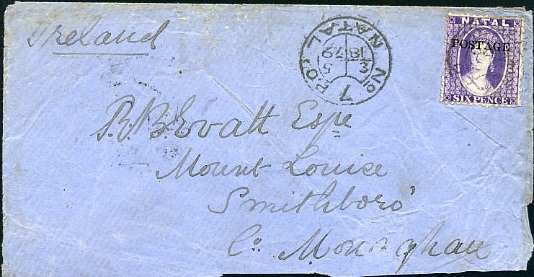 Ireland
P.O. No 7 NATAL
5
3
1879
NATAL
POSTAGE
SIX PENCE
R B Evatt Esqe
Mount Louise
Smithboro'
Co: Monaghan